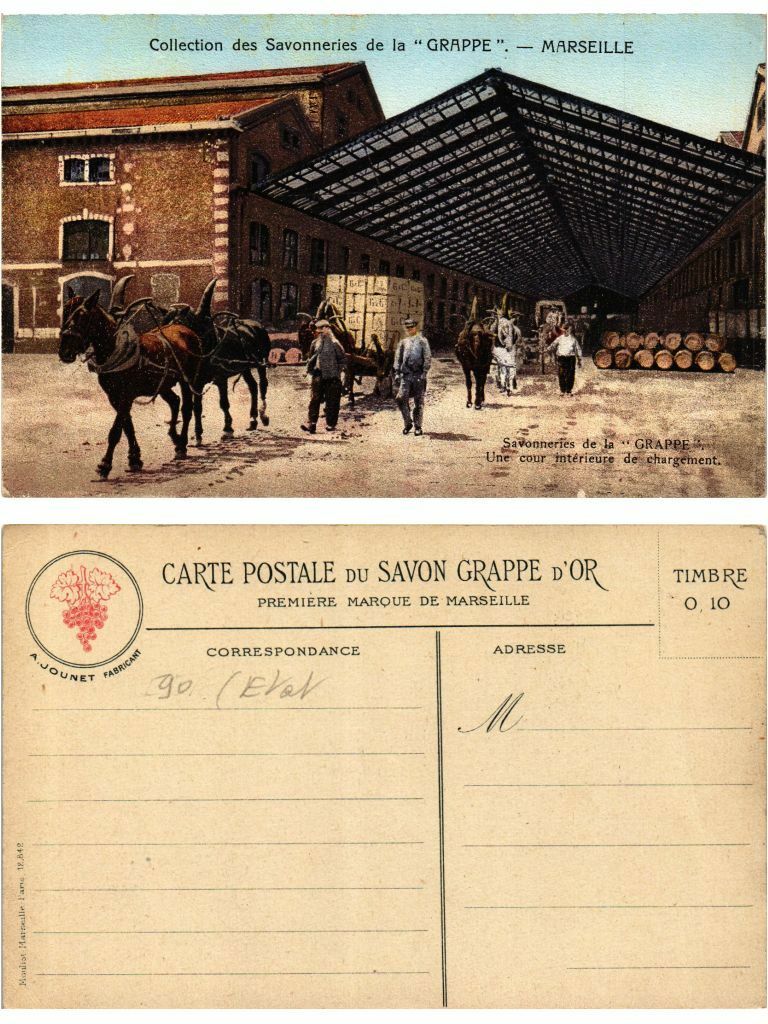 Collection des Savonneries de la “ GRAPPE ”. — MARSEILLE
Savonneries de la “ GRAPPE ”.
Une cour intérieure de chargement.
A. JOUNET FABRICANT
CARTE POSTALE DU SAVON GRAPPE D'OR
PREMIÈRE MARQUE DE MARSEILLE
TIMBRE
0, 10
CORRESPONDANCE
ADRESSE
90
M
Moullot Marseille Paris 12.842